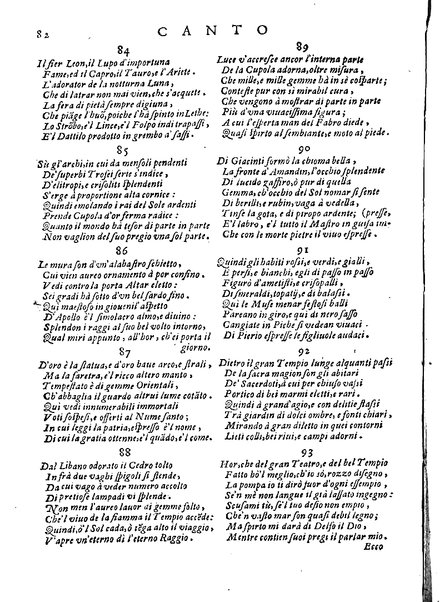 82 CANTO
84
Il fier Leon, il Lupo d'importuna
Fame, ed il Capro, il Tauro, e l'Ariete.
L'adorator de la notturna Luna,
Che di latrar non mai vien, che s'acquete.
La fera di pietà sempre digiuna,
Che piãge l'huõ, poiche l'hà spinto in Lethe:
Lo Strõbo, e'l Lince, e'l Folpo indi trapassi,
E'l Dattilo prodotto in grembo à' sassi.
85
Sù gl'archi, in cui da mensoli pendenti
De' superbi Trofei serie s'indice,
D'elitropi, e crisolti splendenti
S'erge à proportione alta cornice:
Quindi emolando i rai del Sole ardenti
Prende Cupola d'or ferma radice:
Quanto il mondo hà tesor di parte in parte
Non vaglion del suo pregio vna sol parte.
86
Le mura son d'vn'alabastro schietto,
Cui vien aureo ornamento à por confino.
Vedi contra la porta Altar eletto:
Sei gradi hà sotto d'vn bel sardo fino.
Quì maestoso in giouenil'aspetto
D'Apollo è'l simolacro almo, e diuino:
Splendon i raggi al suo bel volto intorno,
Qual miri appunto, all'hor, ch'ei porta il
giorno.
87
D'oro è la statua, e d'oro haue arco, e strali,
Ma la faretra, e'l ricco altero manto,
Tempestato è di gemme Orientali,
Ch'abbaglia il guardo altrui lume cotãto.
Quì vedi innumerabili immortali
Voti sospesi, e offerti al Nume santo;
In cui leggi la patria, espresso è'l nome,
Di cui la gratia ottenne, e'l quãdo, e'l come.
88
Dal Libano odorato il Cedro tolto
Infrà due vaghi spigoli si stende,
Da cui vago à veder numero accolto
Di pretiose lampadi vi splende.
Non men l'aureo lauor di gemme folto,
Che'l viuo de la fiamma il Tempio accẽde:
Quindi, ò'l Sol cada, ò tẽga alto il viaggio,
V'apre vn'eterno dì l'eterno Raggio.
89
Luce v'accresce ancor l'interna parte
De la Cupola adorna, oltre misura,
Che mille, e mille gemme hà in sè cosparte;
Conteste pur con sì mirabil cura,
Che vengono à mostrar di parte in parte
Più d'una viuacissima figura;
E l'arte al'esperta man del Fabro diede,
Quasi spirto al sembiante, e moto al piede.
90
Di Giacinti formò la chioma bella,
La fronte d'Amandin, l'occhio splendente
Di lucido zaffiro, ò pur di quella
Gemma, ch'occhio del Sol nomar si sente
Di berilli, e rubin, vaga à vedella,
Tinse la gota, e di piropo ardente; (presse,
E'l labro, e'l tutto il Mastro in guisa im-
Che con le morte pietre il viuo espresse.
91
Quindi gli habiti rosi, e verdi, e gialli,
E persi, e bianchi, egli di passo in passo
Figurò d'ametisti, e crisopassi,
Di smeraldi, topatij, e di balassi.
Quì le Muse menar festosi balli
Pareano in giro, e quì di nero sasso
Cangiate in Piche si vedean viuaci
Di Pierio espresse le figliuole audaci.
92
Dietro il gran Tempio lunge alquanti passi
De la sacra magion son gli abitari
De' Sacerdoti, à cui per chiuso vassi
Portico di bei marmi eletti, e rari.
Quindi à grand'agio, e con delitie stassi
Trà giardin di dolci ombre, e fonti chiari.
Mirando à gran diletto in quei contorni
Lieti colli, bei riui, e campi adorni.
93
Hor, che del gran Teatro, e del bel Tempio
Fatto hò'l meglio, ch'io sò, rozzo disegno,
La pompa io ti dirò fuor d'ogni essempio,
Se'n mè non langue il già lassato ingegno:
Scusami tù, se'l tuo desio non empio,
Che s'vn vasto mar son quasi debil legno;
Ma sperto mi darà di Delfo il Dio,
Mentre contien suoi pregi il parlar mio.
Ecco